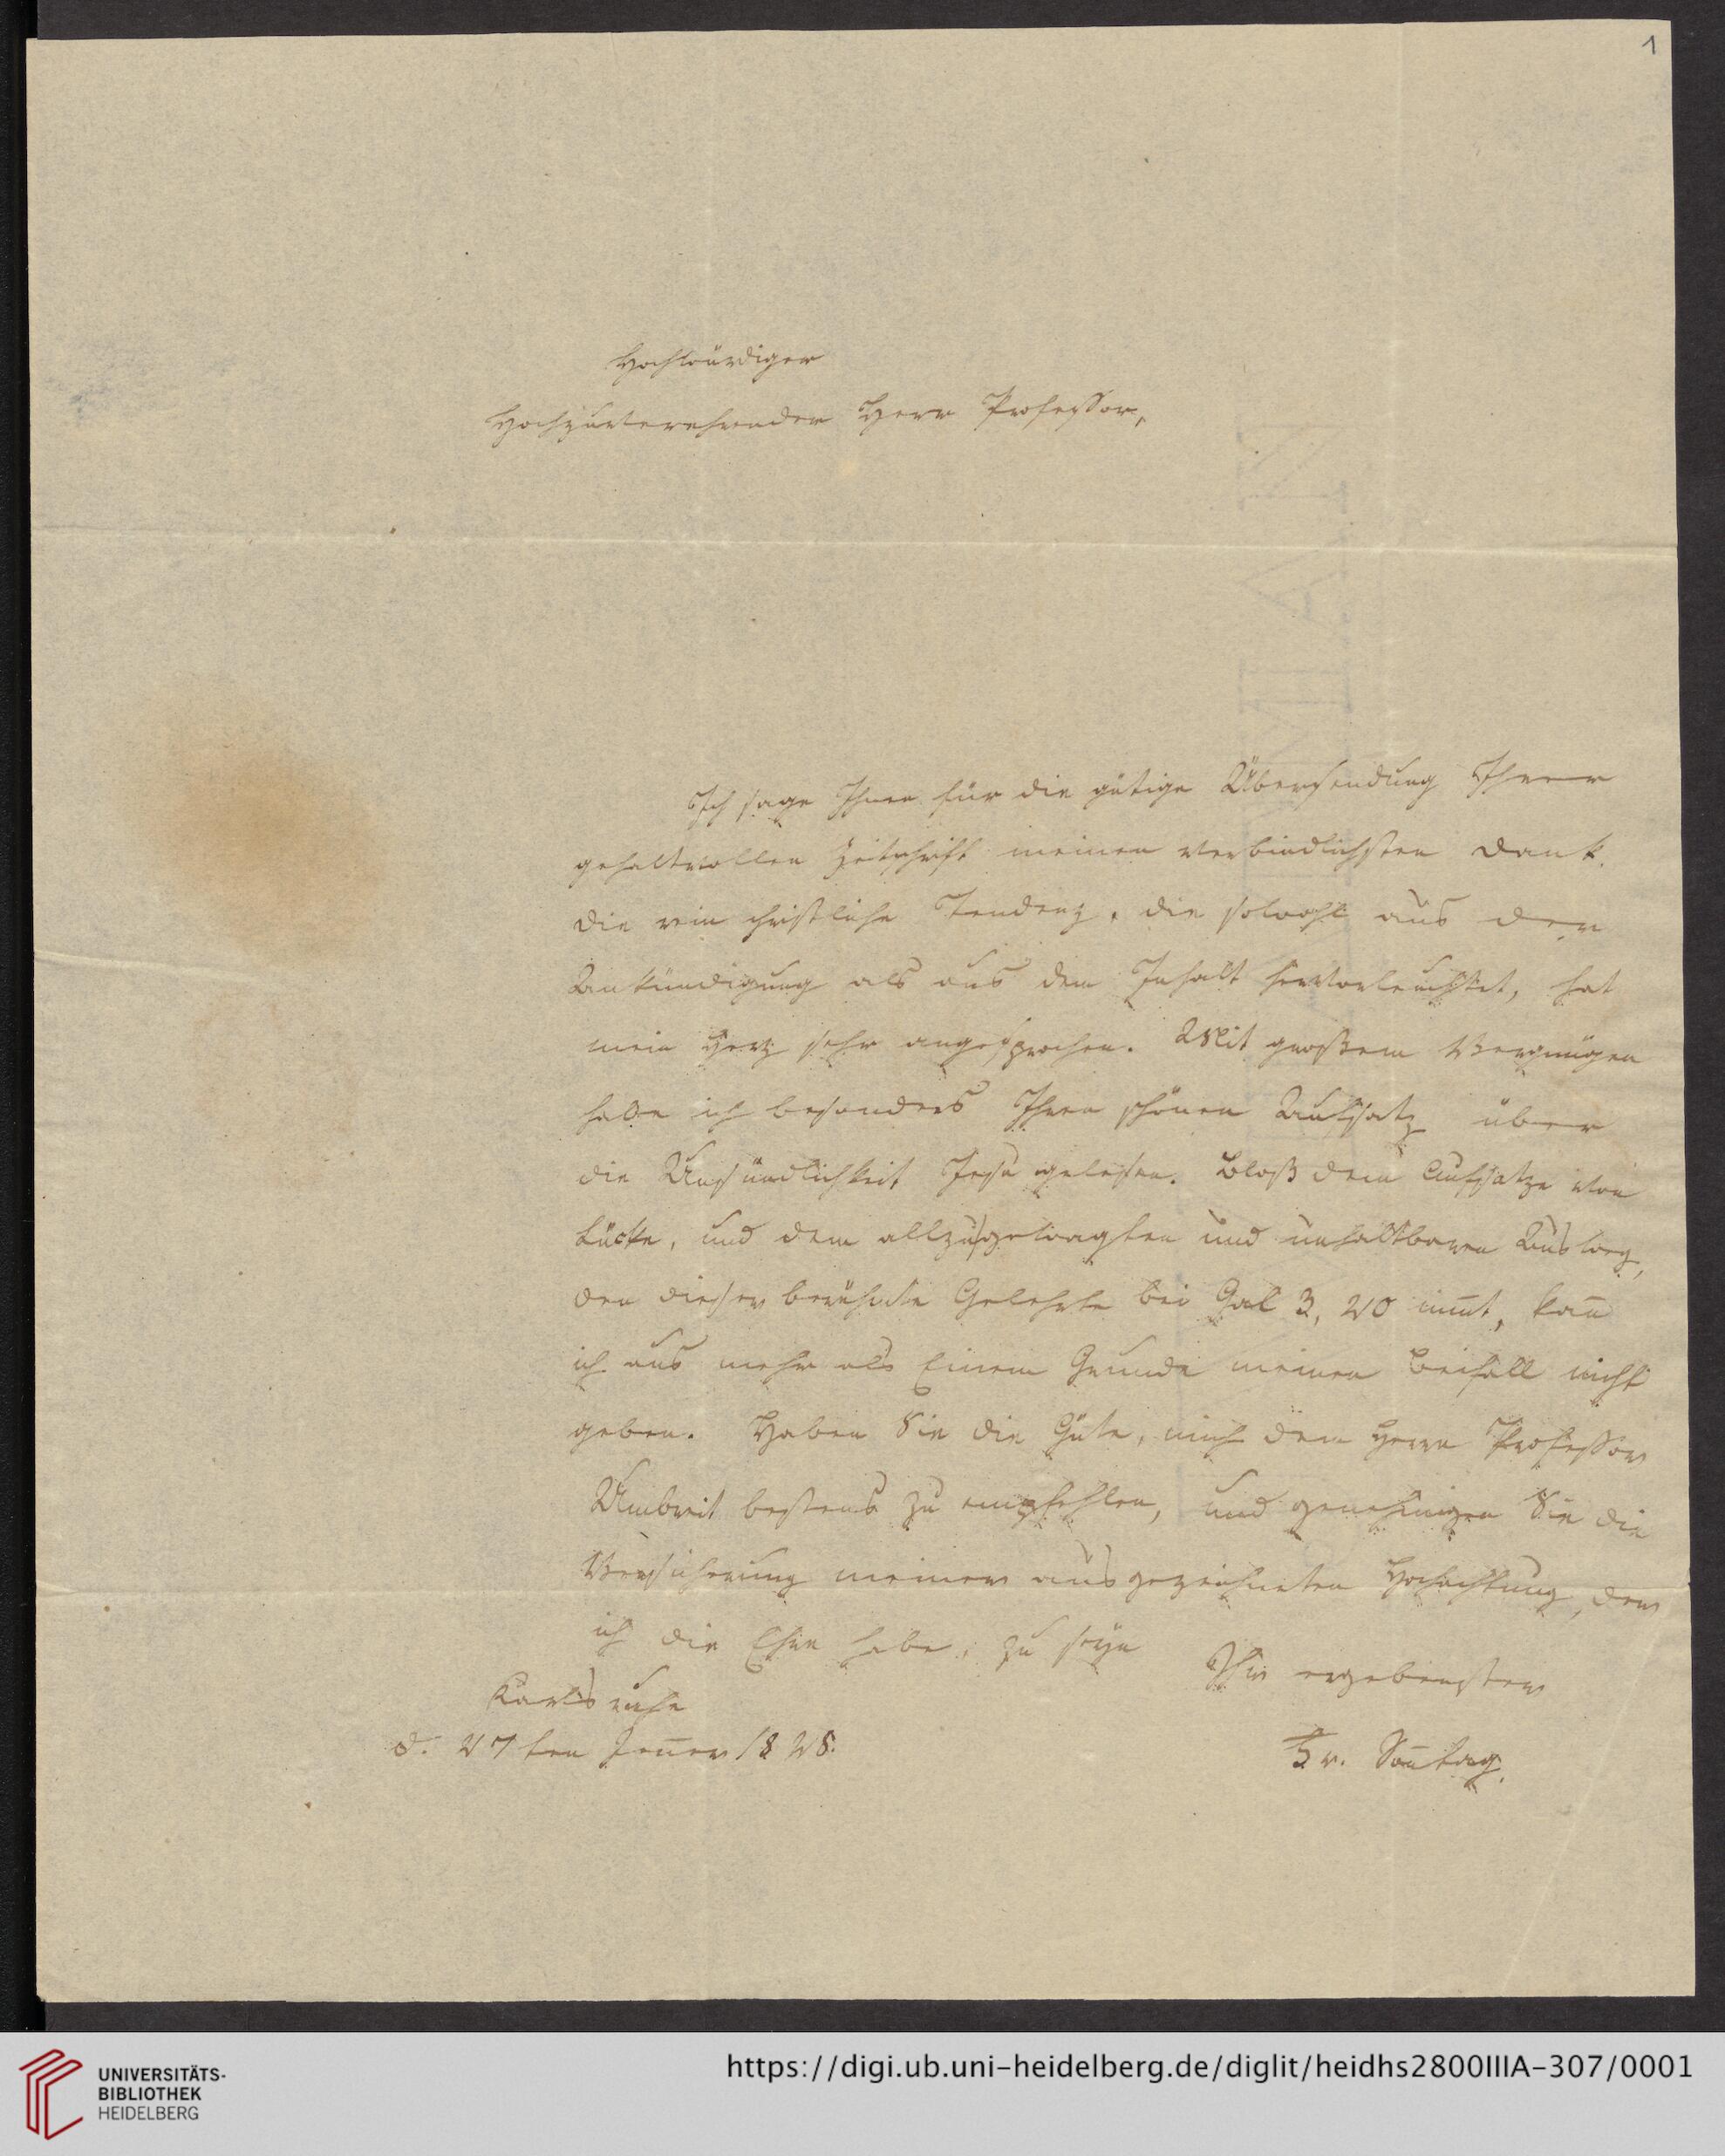 1
Hochwürdiger
Hochzuverehrender Herr Professor,
Ich sage Ihnen für die gütige Übersendung Ihrer
gehaltvollen Zeitschrift meinen verbindlichsten Dank.
Die rein christliche Tendenz, die sowohl aus der
Ankündigung als aus dem Inhalt hervorleuchtet, hat
mein Herz sehr angesprochen. Mit großem Vergnügen
habe ich besonders Ihren schönen Aufsatz über
die Unsündlichkeit Jesu gelesen. Bloß dem Aufsatze von
Lücke, und dem allzugewagten und unhaltbaren Ausweg,
den dieser berühmte Gelehrte bei Gal 3, 20 nim̄t, kan̄
ich aus mehr als Einem Grunde meinen Beifall nicht
geben. Haben Sie die Güte, mich dem Herrn Professor
Umbreit bestens zu empfehlen, und genehmigen Sie die
Versicherung meiner ausgezeichneten Hochachtung, der
ich die Ehre habe, zu seyn
Ihr ergebenster
Karlsruhe
d. 27ten Jen̄er 1828.
Fr. Son̄tag.
UNIVERSITÄTS-
BIBLIOTHEK
HEIDELBERG
https://digi.ub.uni-heidelberg.de/diglit/heidhs2800IIIA-307/0001